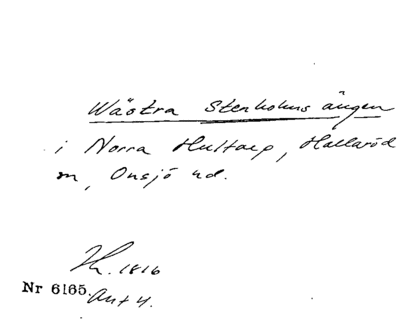 Wästra Stenholms ängen
i Norra Hultarp, Hallaröd
sn, Onsjö hd.
Th. 1816
Nr 6165. Ant 4.